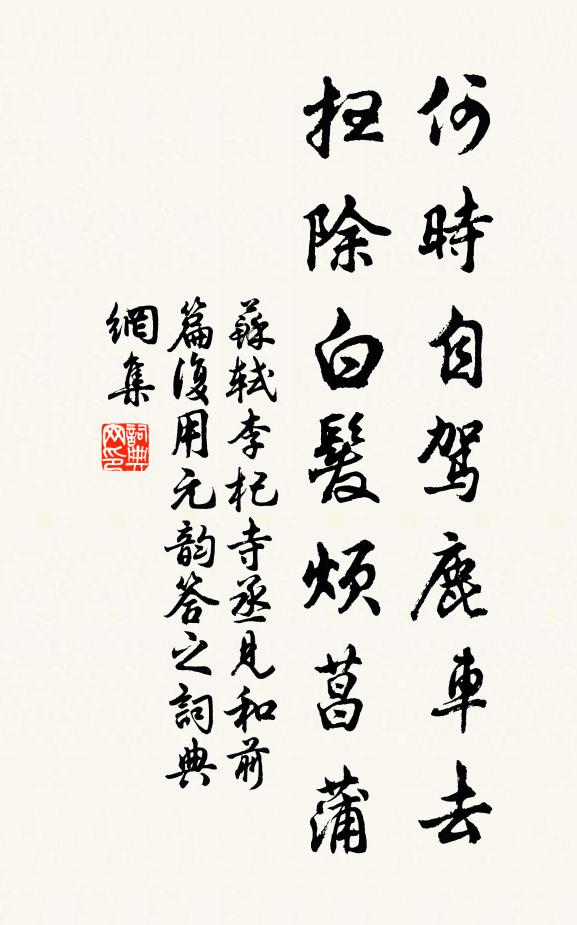 何時自駕鹿車去
掃除白髮煩菖蒲
蘇軾李杞寺丞見和前
篇復用元韵答之詞典
網集
詞典
网印